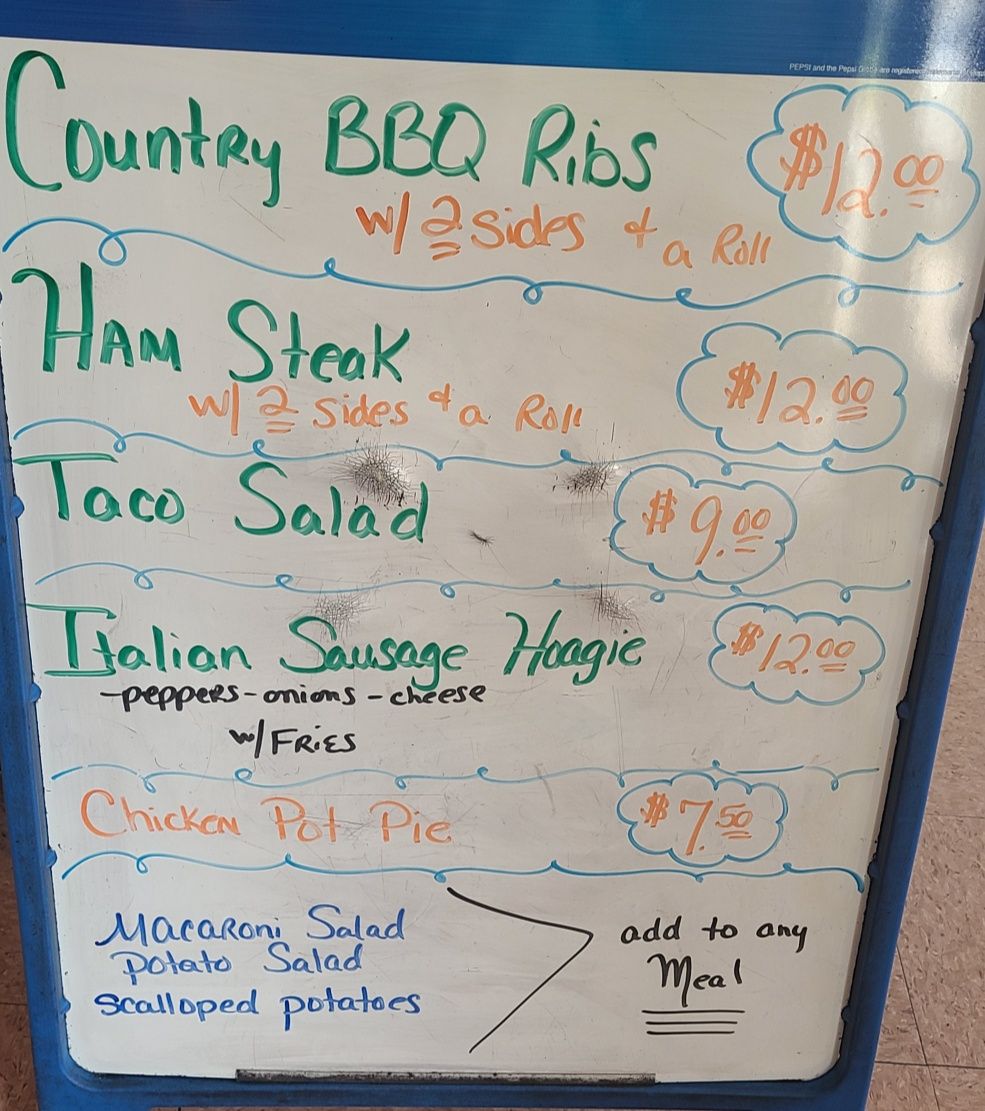 PEPSI and the Pepsi Globe are registered
Country BBQ Ribs $12.00
w/ 2 sides & a Roll
HAM Steak $12.00
w/ 2 sides & a Roll
Taco Salad $9.00
Italian Sausage Hoagie $12.00
-peppers-onions-cheese
w/FRIES
Chicken Pot Pie $7.50
Macaroni Salad
potato Salad
scalloped potatoes
add to any
Meal